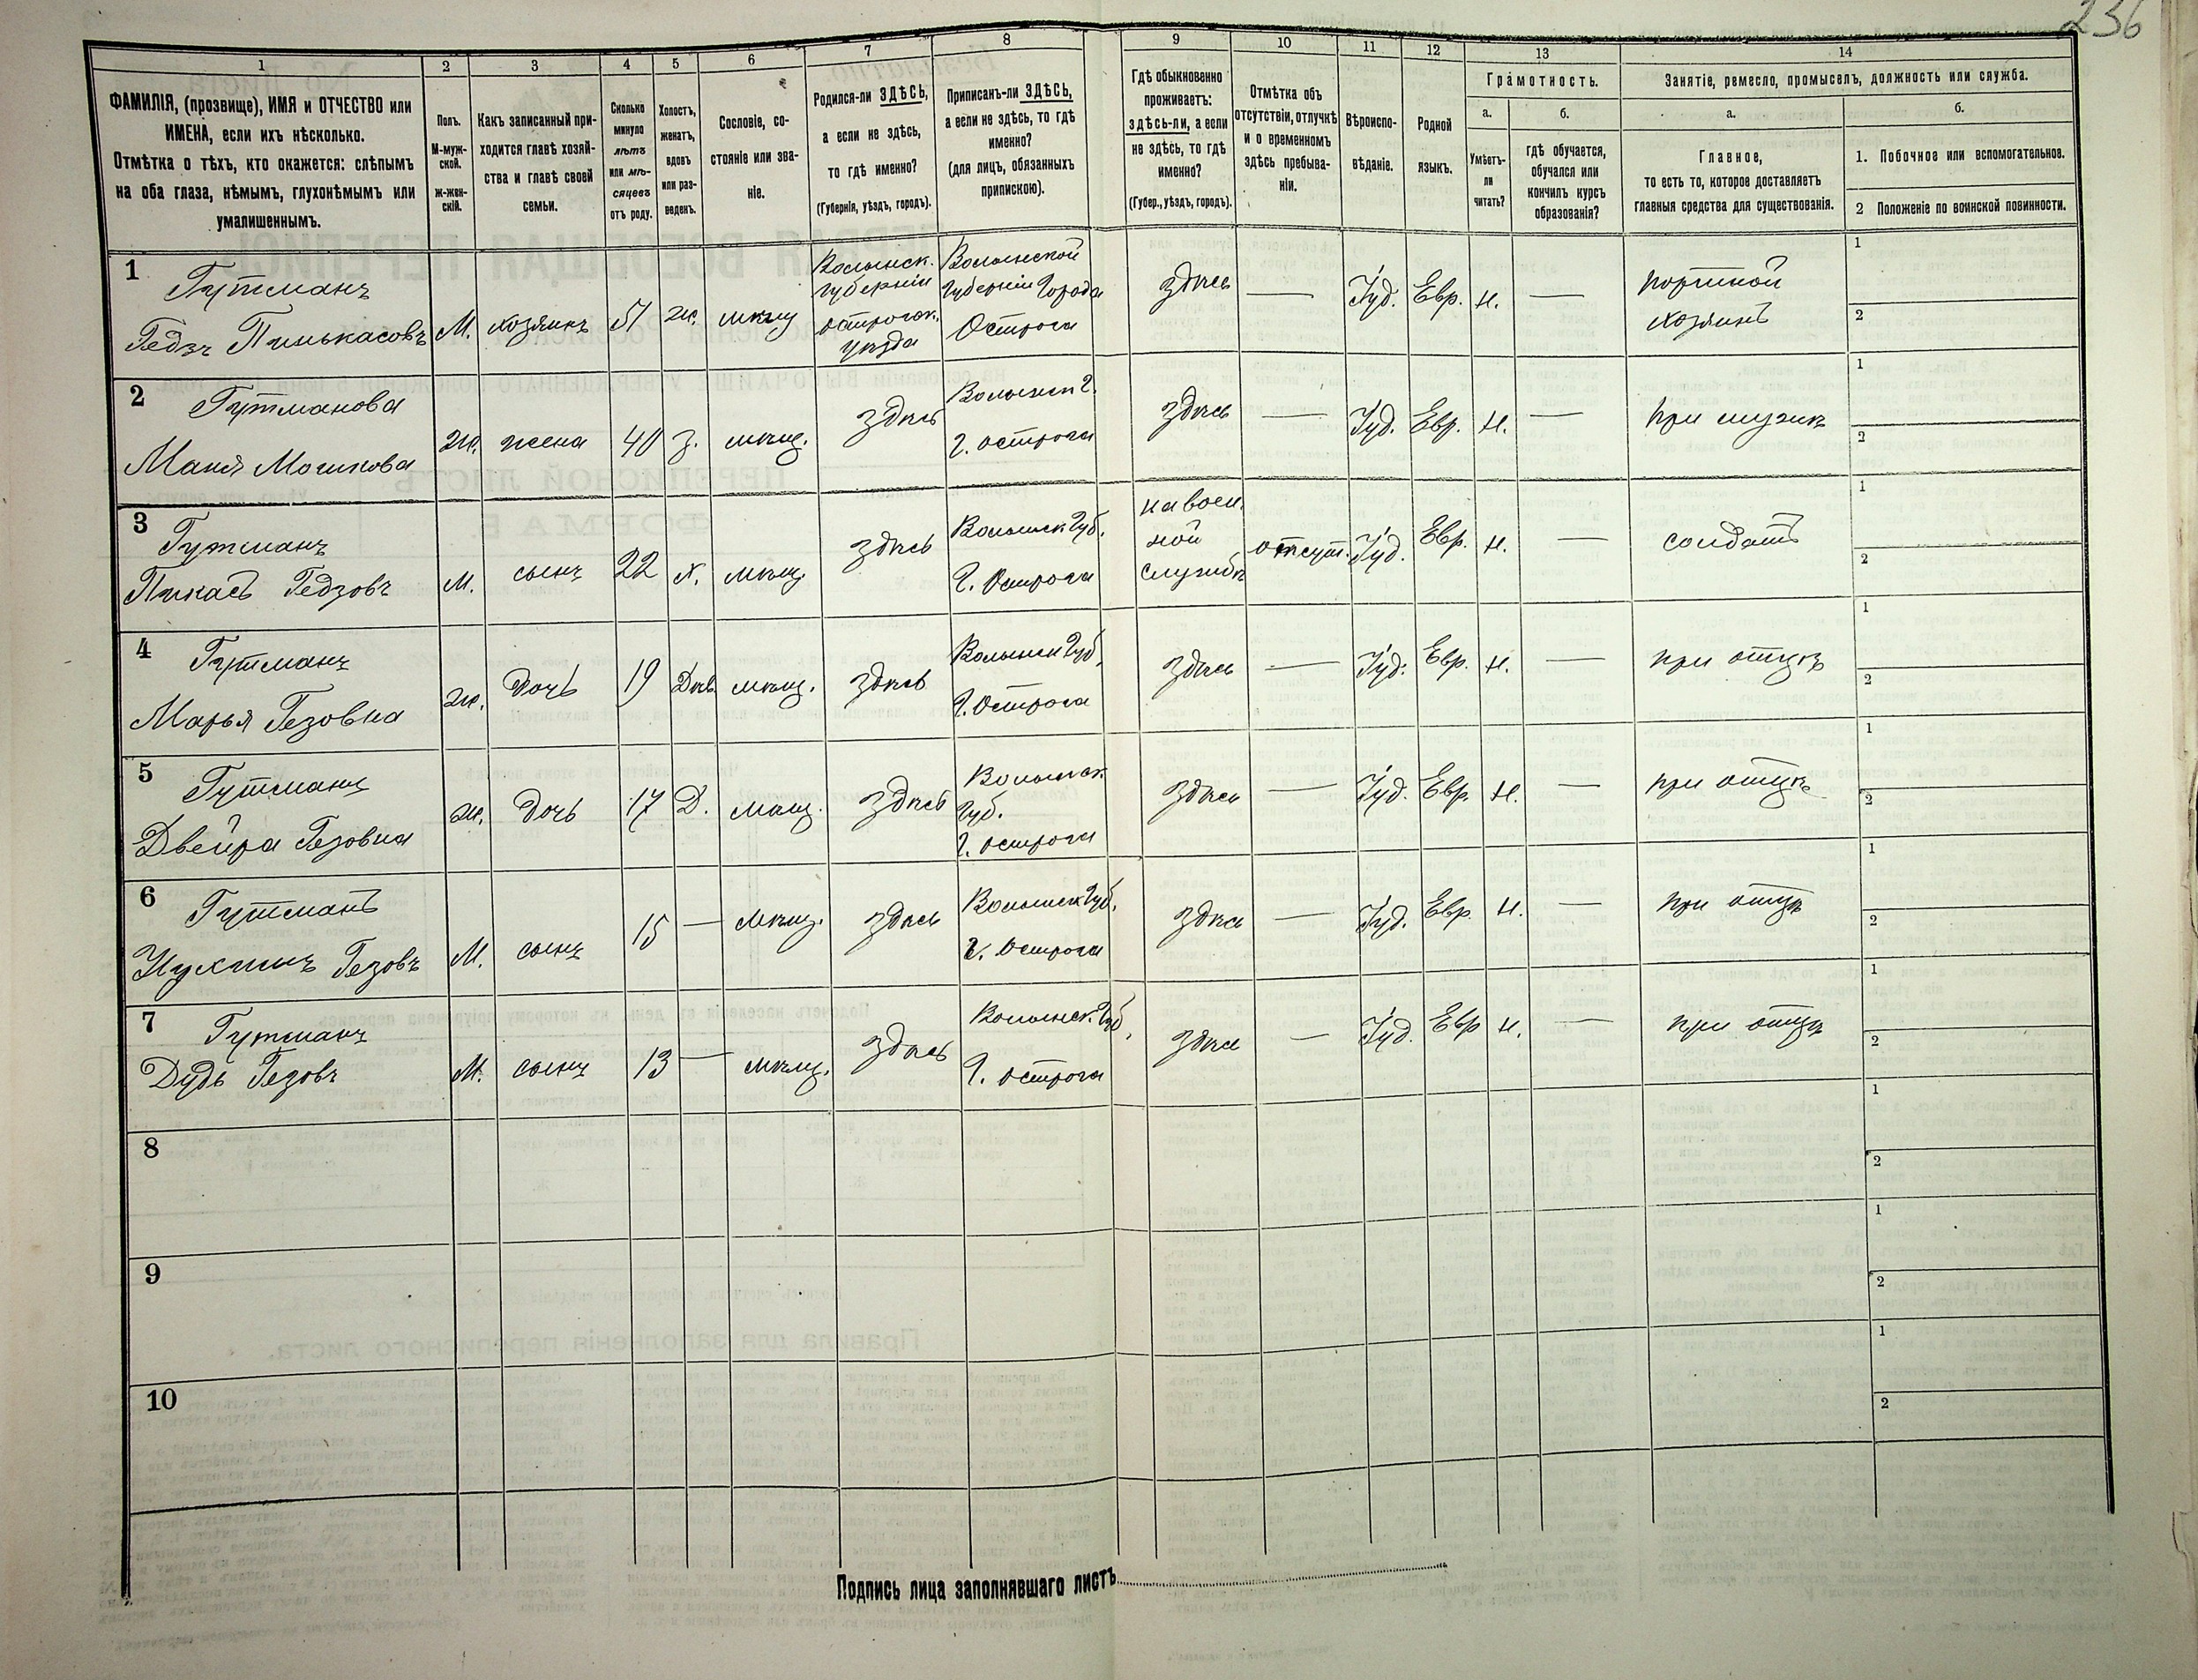 236
1 2 3 4 5 6 7 8 9 10 11 12 13 14
ФАМИЛІЯ, (прозвище), ИМЯ и ОТЧЕСТВО или
ИМЕНА, если ихъ нѣсколько.
Отмѣтка о тѣхъ, кто окажется: слѣпымъ
на оба глаза, нѣмымъ, глухонѣмымъ или
умалишеннымъ.
Полъ.
М-муж-
ской.
Ж-жен-
скій.
Какъ записанный при-
ходится главѣ хозяй-
ства и главѣ своей
семьи.
Сколько
минуло
лѣтъ
или мѣ-
сяцевъ
отъ роду.
Холостъ,
женатъ,
вдовъ
или раз-
веденъ.
Сословіе, со-
стояніе или зва-
ніе.
Родился-ли ЗДѢСЬ,
а если не здѣсь,
то гдѣ именно?
(Губернія, уѣздъ, городъ).
Приписанъ-ли ЗДѢСЬ,
а если не здѣсь, то гдѣ
именно?
(для лицъ, обязанныхъ
припискою).
Гдѣ обыкновенно
проживаетъ:
здѣсь-ли, а если
не здѣсь, то гдѣ
именно?
(Губер., уѣздъ, городъ).
Отмѣтка объ
отсутствіи, отлучкѣ
и о временномъ
здѣсь пребыва-
ніи.
Вѣроиспо-
вѣданіе.
Родной
языкъ.
Грамотность.
а.
Умѣетъ-
ли
читать?
б.
гдѣ обучается,
обучался или
кончилъ курсъ
образованія?
Занятіе, ремесло, промыселъ, должность или служба.
а.
Главное,
то есть то, которое доставляетъ
главныя средства для существованія.
б.
1. Побочное или вспомогательное.
2 Положеніе по воинской повинности.
1
Гутманъ
Гедзъ Пинькасовъ
М. хозяинъ 51 ж. мѣщ
Волынск.
губерніи
острогск.
уѣзда
Волынской
губерніи города
Острога
здѣсь — Іуд. Евр. н. —
портной
хозяинъ
1
2
2
Гутманова
Маня Мошкова
ж. жена 40 з. мѣщ. здѣсь
Волынск г.
г. острога
здѣсь — Іуд. Евр. н. — при мужѣ
1
2
3
Гутманъ
Пикасъ Гедзовъ
М. сынъ 22 х. мѣщ. здѣсь
Волынск губ.
г. Острога
на воен.
ной
службѣ
отсут. Іуд. Евр. н. — солдатъ
1
2
4
Гутманъ
Марья Гезовна
ж. Дочь 19 Дѣв. мѣщ. здѣсь
Волынск губ,
г. Острога
здѣсь — Іуд. Евр. н. — при отцѣ
1
2
5
Гутманъ
Двейра Гезовна
ж. Дочь 17 Д. мѣщ. здѣсь
Волынск
губ.
г. острога
здѣсь — Іуд. Евр. н. — при отцѣ
1
2
6
Гутманъ
Гезовъ
М. сынъ 15 — мѣщ. здѣсь
Волынск губ.
г. Острога
здѣсь — Іуд. Евр. н. — при отцѣ
1
2
7
Гутманъ
Дудь Гезовъ
М. сынъ 13 — мѣщ. здѣсь
Волынск. губ,
г. острога
здѣсь — Іуд. Евр н. — при отцѣ
1
2
8
1
2
9
1
2
10
1
2
Подпись лица заполнявшаго листъ